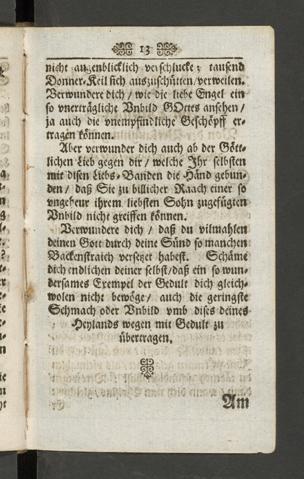 13
nicht augenblicklich verschlucke; tausend
Donner-Keil sich auszuschütten/ verweilen.
Verwundere dich/ wie die liebe Engel ein
so vnerträgliche Vnbild GOttes ansehen/
ja auch die vnempfindliche Geschöpff er-
tragen können.
Aber verwunder dich auch ab der Gött-
lichen Lieb gegen dir/ welche Jhr selbsten
mit disen Liebs-Banden die Händ gebun-
den/ daß Sie zu billicher Raach einer so
vngeheur ihrem liebsten Sohn zugefügten
Vnbild nicht greiffen können.
Verwundere dich/ daß du vilmahlen
deinen Gott durch deine Sünd so manchen
Backenstraich versetzet habest. Schäme
dich endlichen deiner selbst/ daß ein so wun-
dersames Exempel der Gedult dich gleich-
wolen nicht bewöge/ auch die geringste
Schmach oder Vnbild vmb dises deines
Heylands wegen mit Gedult zu
übertragen.
Am